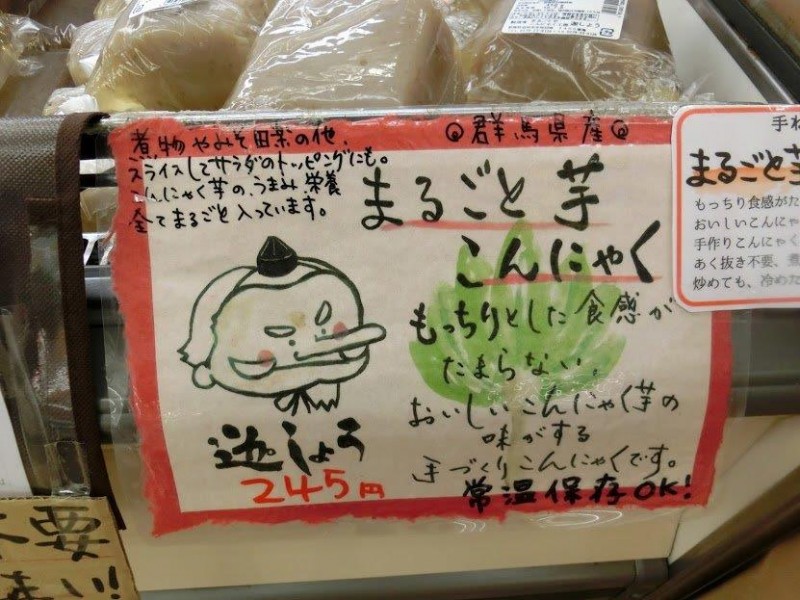 煮物やみそ田楽の他、
スライスしてサラダのトッピングにも。
こんにゃく芋のうまみ、栄養
全てまるごと入っています。
群馬県産
まるごと芋
こんにゃく
もっちりとした食感が
たまらない。
おいしいこんにゃく芋の
味がする
手づくりこんにゃくです。
常温保存OK!
しょう
245円
まるごと芋
もっちり食感がた
おいしいこんにゃ
手作りこんにゃく
あく抜き不要、煮
炒めても、冷めた
不要